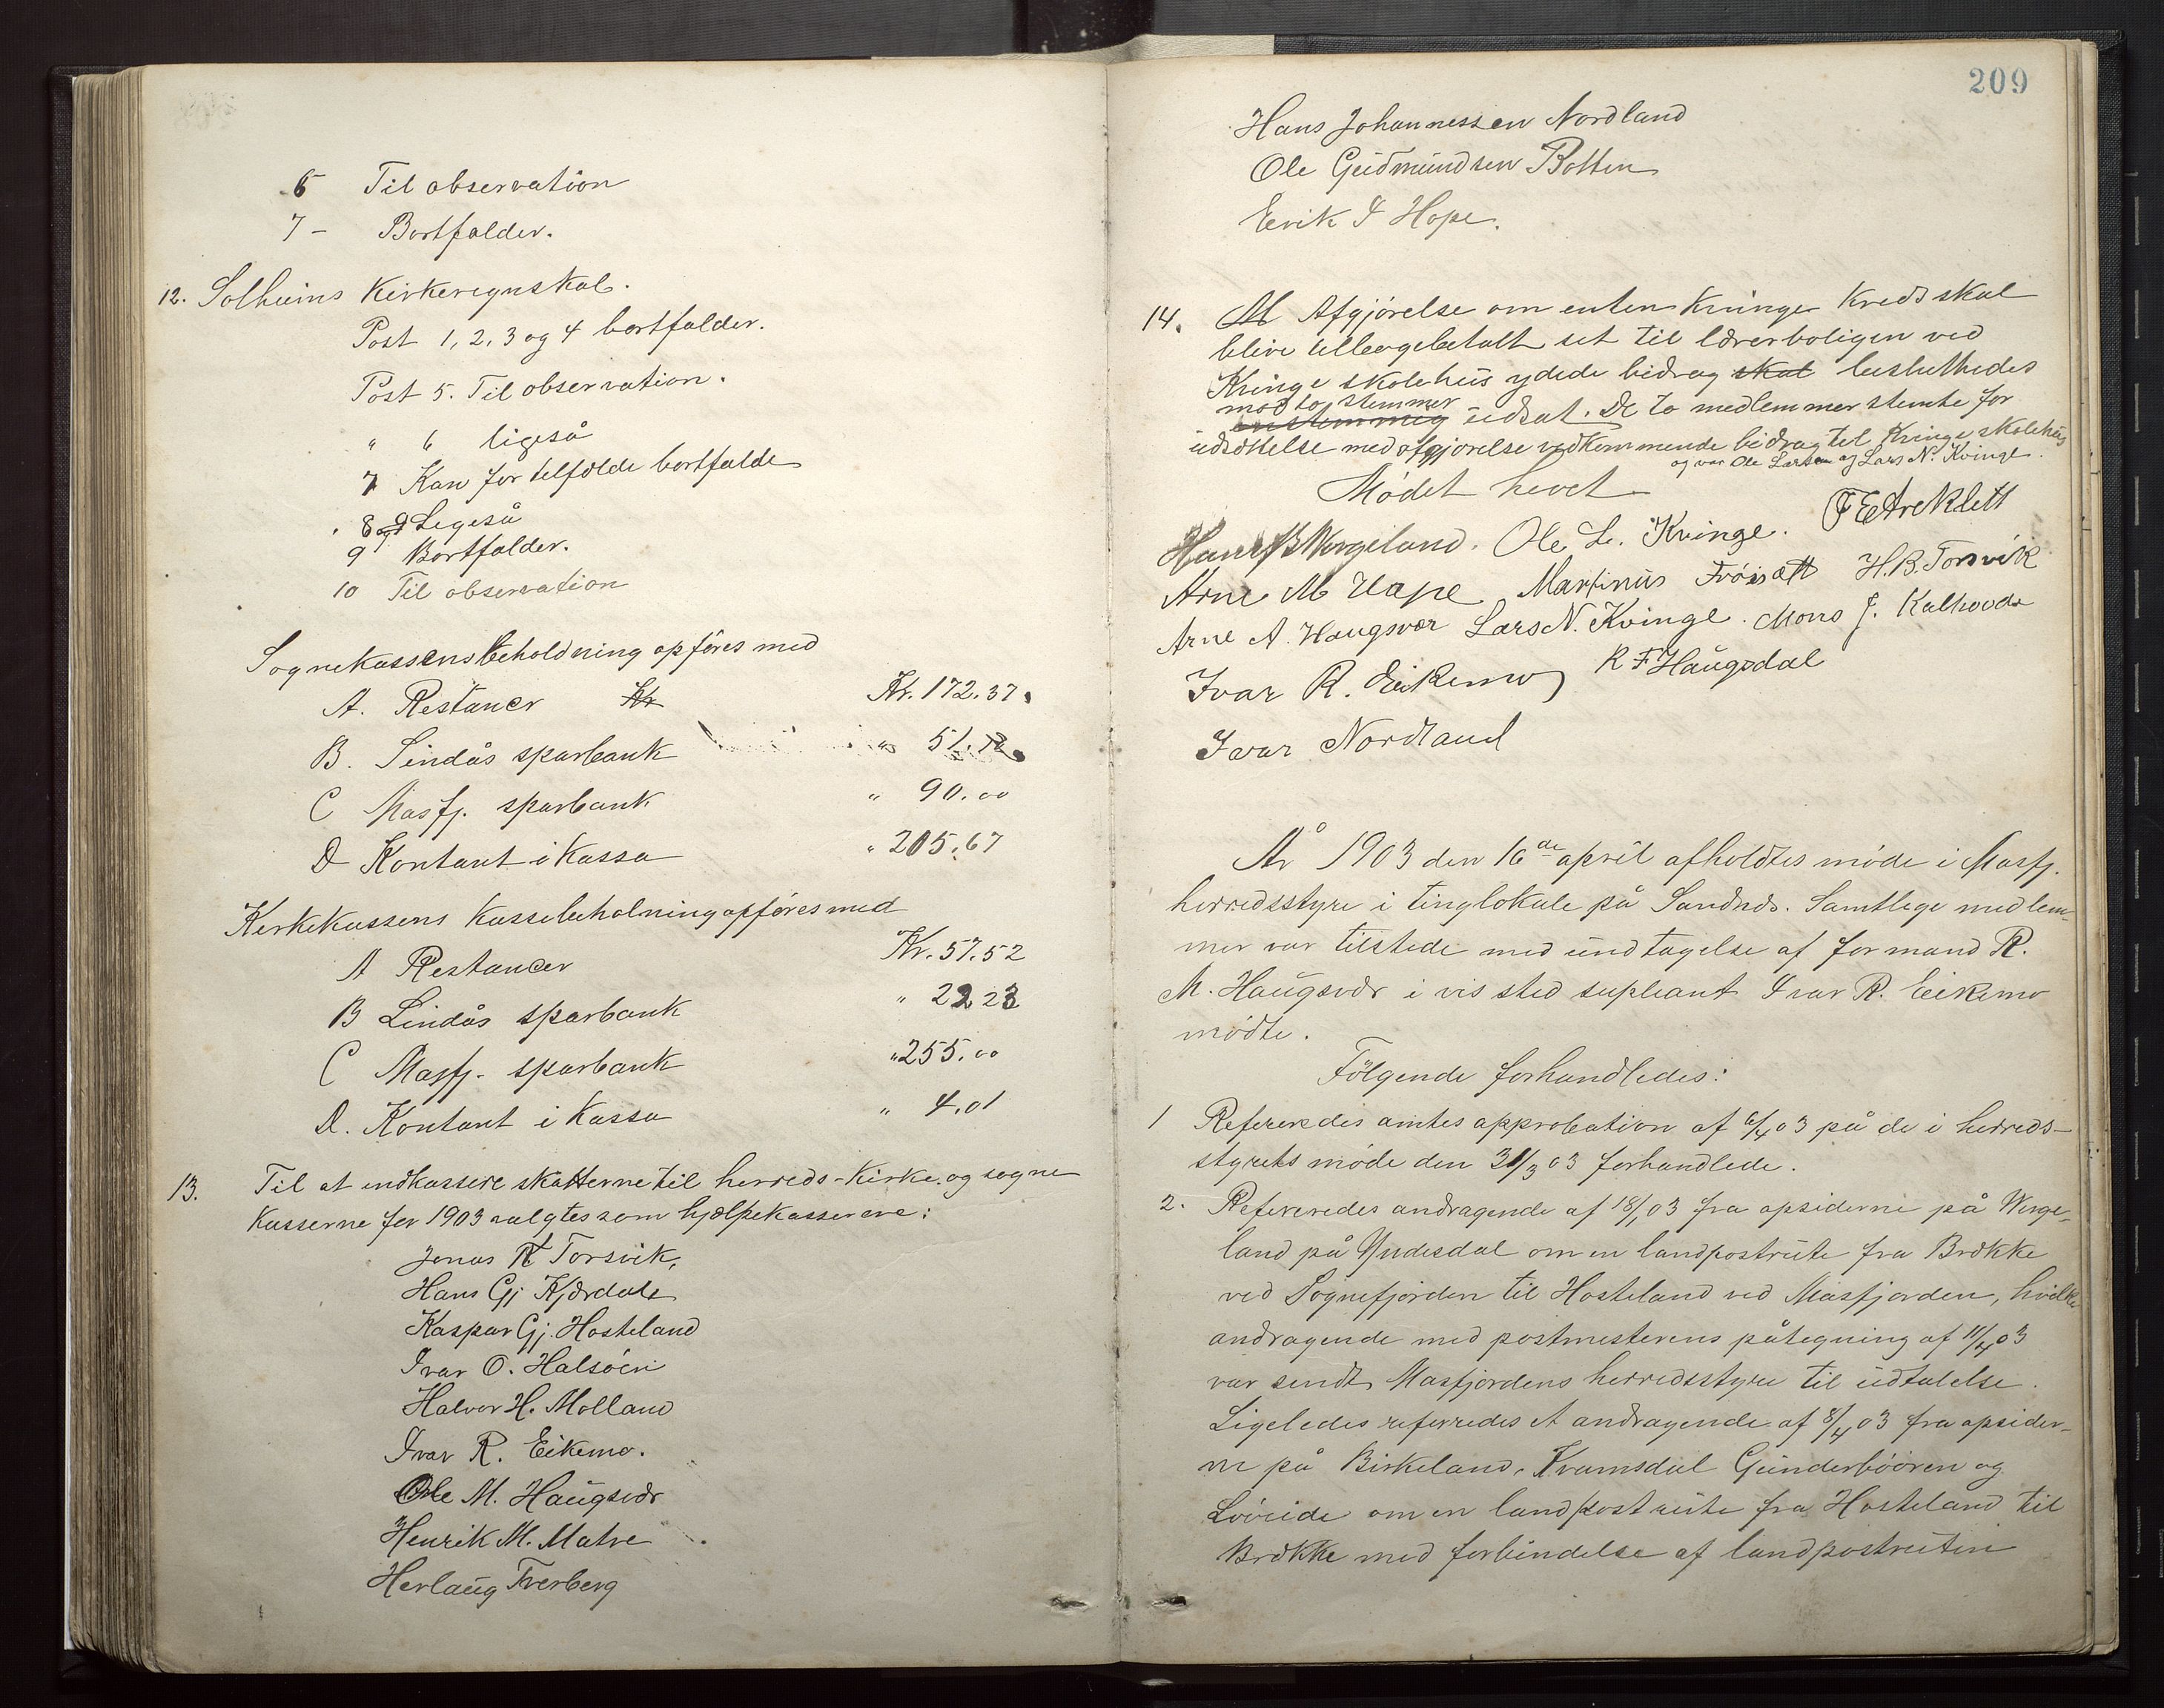 6 Til observation
7 - Bortfalder.
12. Solheims Kirkeregnskab.
Post 1, 2, 3 og 4 bortfalder.
Post 5. Til observation.
" 6 ligeså
7 Kan for tilfælde bortfalde
8 og 9 Ligeså
9 Bortfalder.
10 Til observation
Sognekassens beholdning opføres med
A. Restancer Kr Kr. 172.37
B. Lindås sparbank " 51.12
C Masfj. sparbank " 90.00
D Kontant i Kassa " 205.67
Kirkekassens Kassebeholning opføres med
A Restancer Kr. 57.52
B Lindås sparbank " 22 23
C Masfj. sparbank " 255.00
D. Kontant i Kassa " 4.01
13. Til at indkassere skatterne til herreds-Kirke og sogne
Kasserne for 1903 valgtes som hjælpekasserere:
Jonas R Torsvik,
Hans Gj Kjærdale
Kaspar Gj. Hosteland
Ivar O. Halsöen
Halvor H. Molland
Ivar R. Eikemo.
Ole M. Haugsvær
Henrik M. Matre
Herlaug Tverberg
209
Hans Johannessen Nordland
Ole Gudmundsen Botten
Eerik I Hope.
14. Afgjörelse om enten Kvinge Kreds skal
blive tilbagebetalt sit til lærerboligen ved
Kvinge skolehus ydede bidrag skal besluttedes
mod to stemmer
enstemmig udsat. De to medlemmer stemte for
udsættelse med afgjörelse vedkommende bidrag til Kvinge skolehus
og var Ole Larsen og Lars N. Kvinge.
Mödet hevet
Hans B Wergeland. Ole L. Kvinge. F E Areklett
Arne M Hope Martinus Fröisætt H. B. Torsvik
Arne A. Haugsvær Lars N. Kvinge. Mons J. Kalhovde
Ivar R. Eikemo R F Haugsdal
Ivar Nordland
År 1903 den 16de april afholdtes möde i Masfj.
herredsstyre i tinglokale på Sandnæs. Samtlege medlem-
mer var tilstede med undtagelse af formand R.
M. Haugsvær i vis sted supleant Ivar R. Eikemo
mödte.
Fölgende forhandledes:
1 Refereredes amtes approbation af 6/4 03 på de i herreds-
styrets möde den 31/3 03 forhandlede.
2. Refereredes andragende af 18/1 03 fra opsiderne på Werge-
land på Yndesdal om en landpostrute fra Brække
ved Sognefjorden til Hosteland ved Masfjorden, hvilke
andragende med postmesterens påtegning af 11/4 03
var sendt Masfjordens herredsstyre til udtalelse.
Ligeledes referredes et andragende af 8/4 03 fra opsider-
ne på Birkeland, Kvamsdal Gunderbööen og
Lövide om en landpostrute fra Hosteland til
Brække med forbindelse af landpostruten